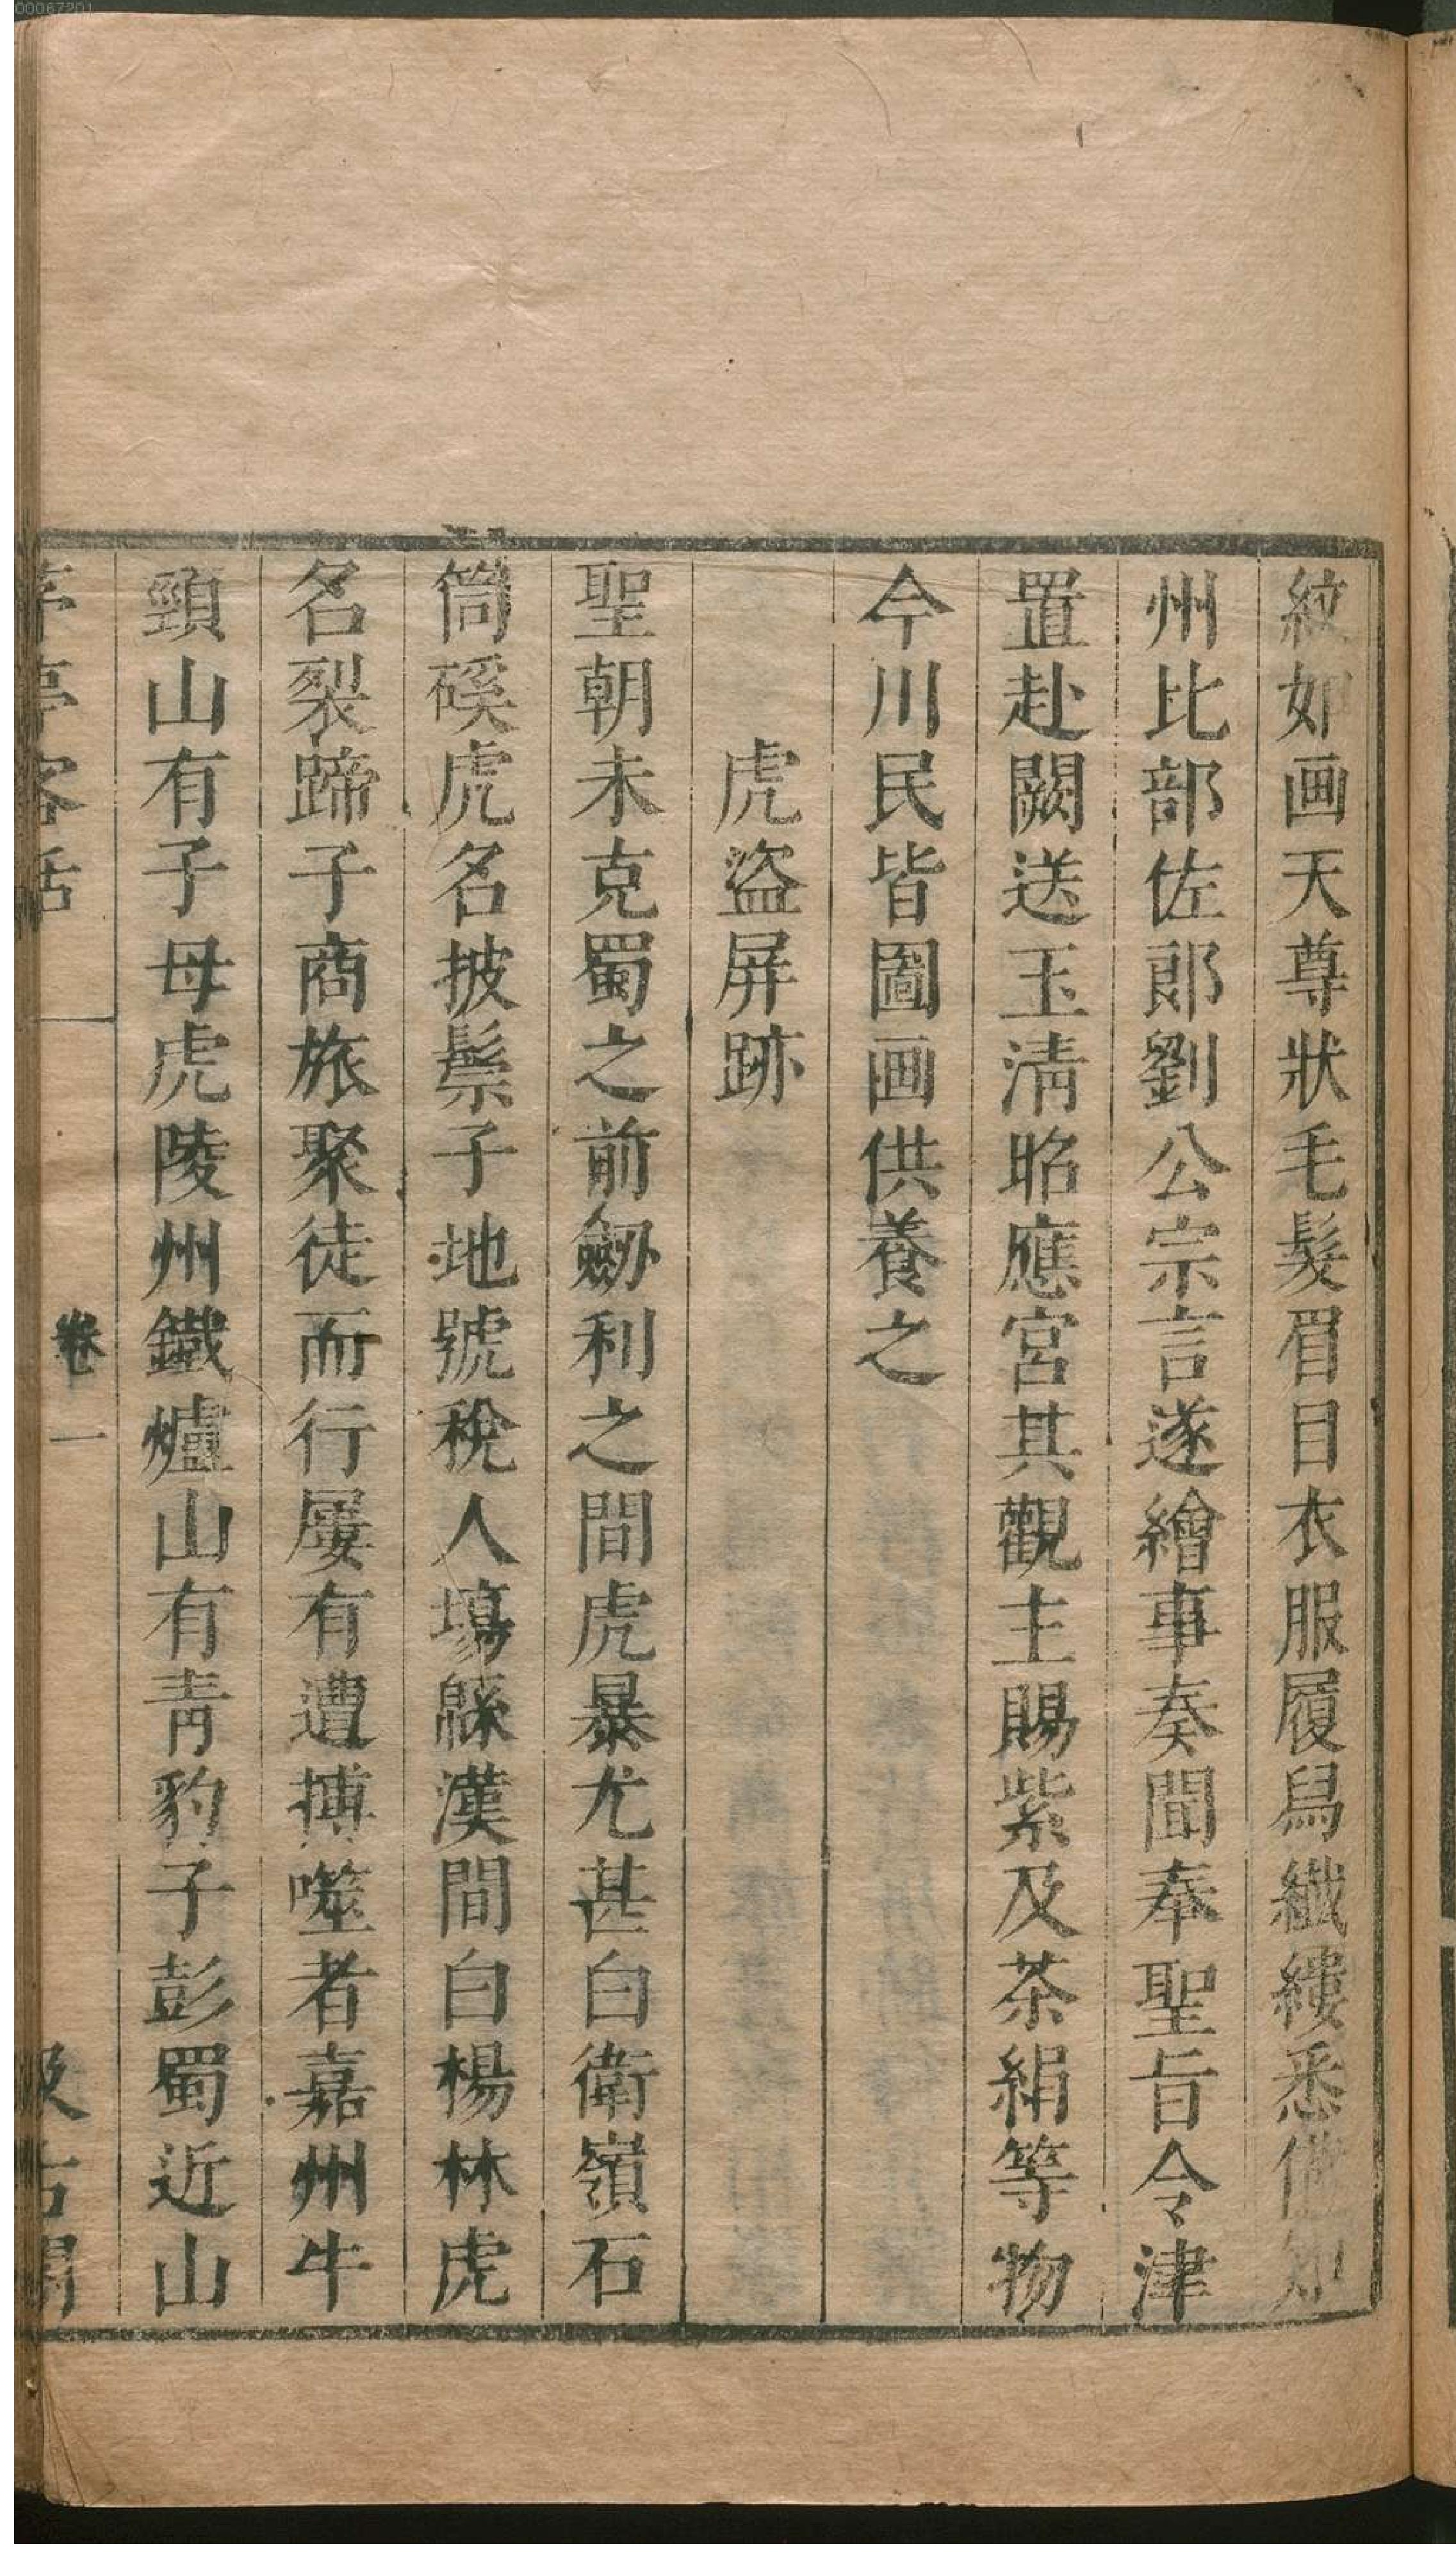 紋如画天尊狀毛髮眉目衣服履舄纖縷悉備知
州比部佐郎劉公宗言遂繪事奏聞奉聖旨令津
置赴闕送玉清昭應宮其觀主賜紫及茶絹等物
今川民皆圖画供養之
虎盜屏跡
聖朝未克蜀之前劒利之間虎暴尤甚白衛嶺石
筒磎虎名披鬃子地號稅人場緜漢間白楊林虎
名裂蹄子商旅聚徒而行屢有遭搏噬者嘉州牛
頸山有子母虎陵州鐵爐山有青豹子彭蜀近山
茅亭客話 卷一 汲古閣
00067201